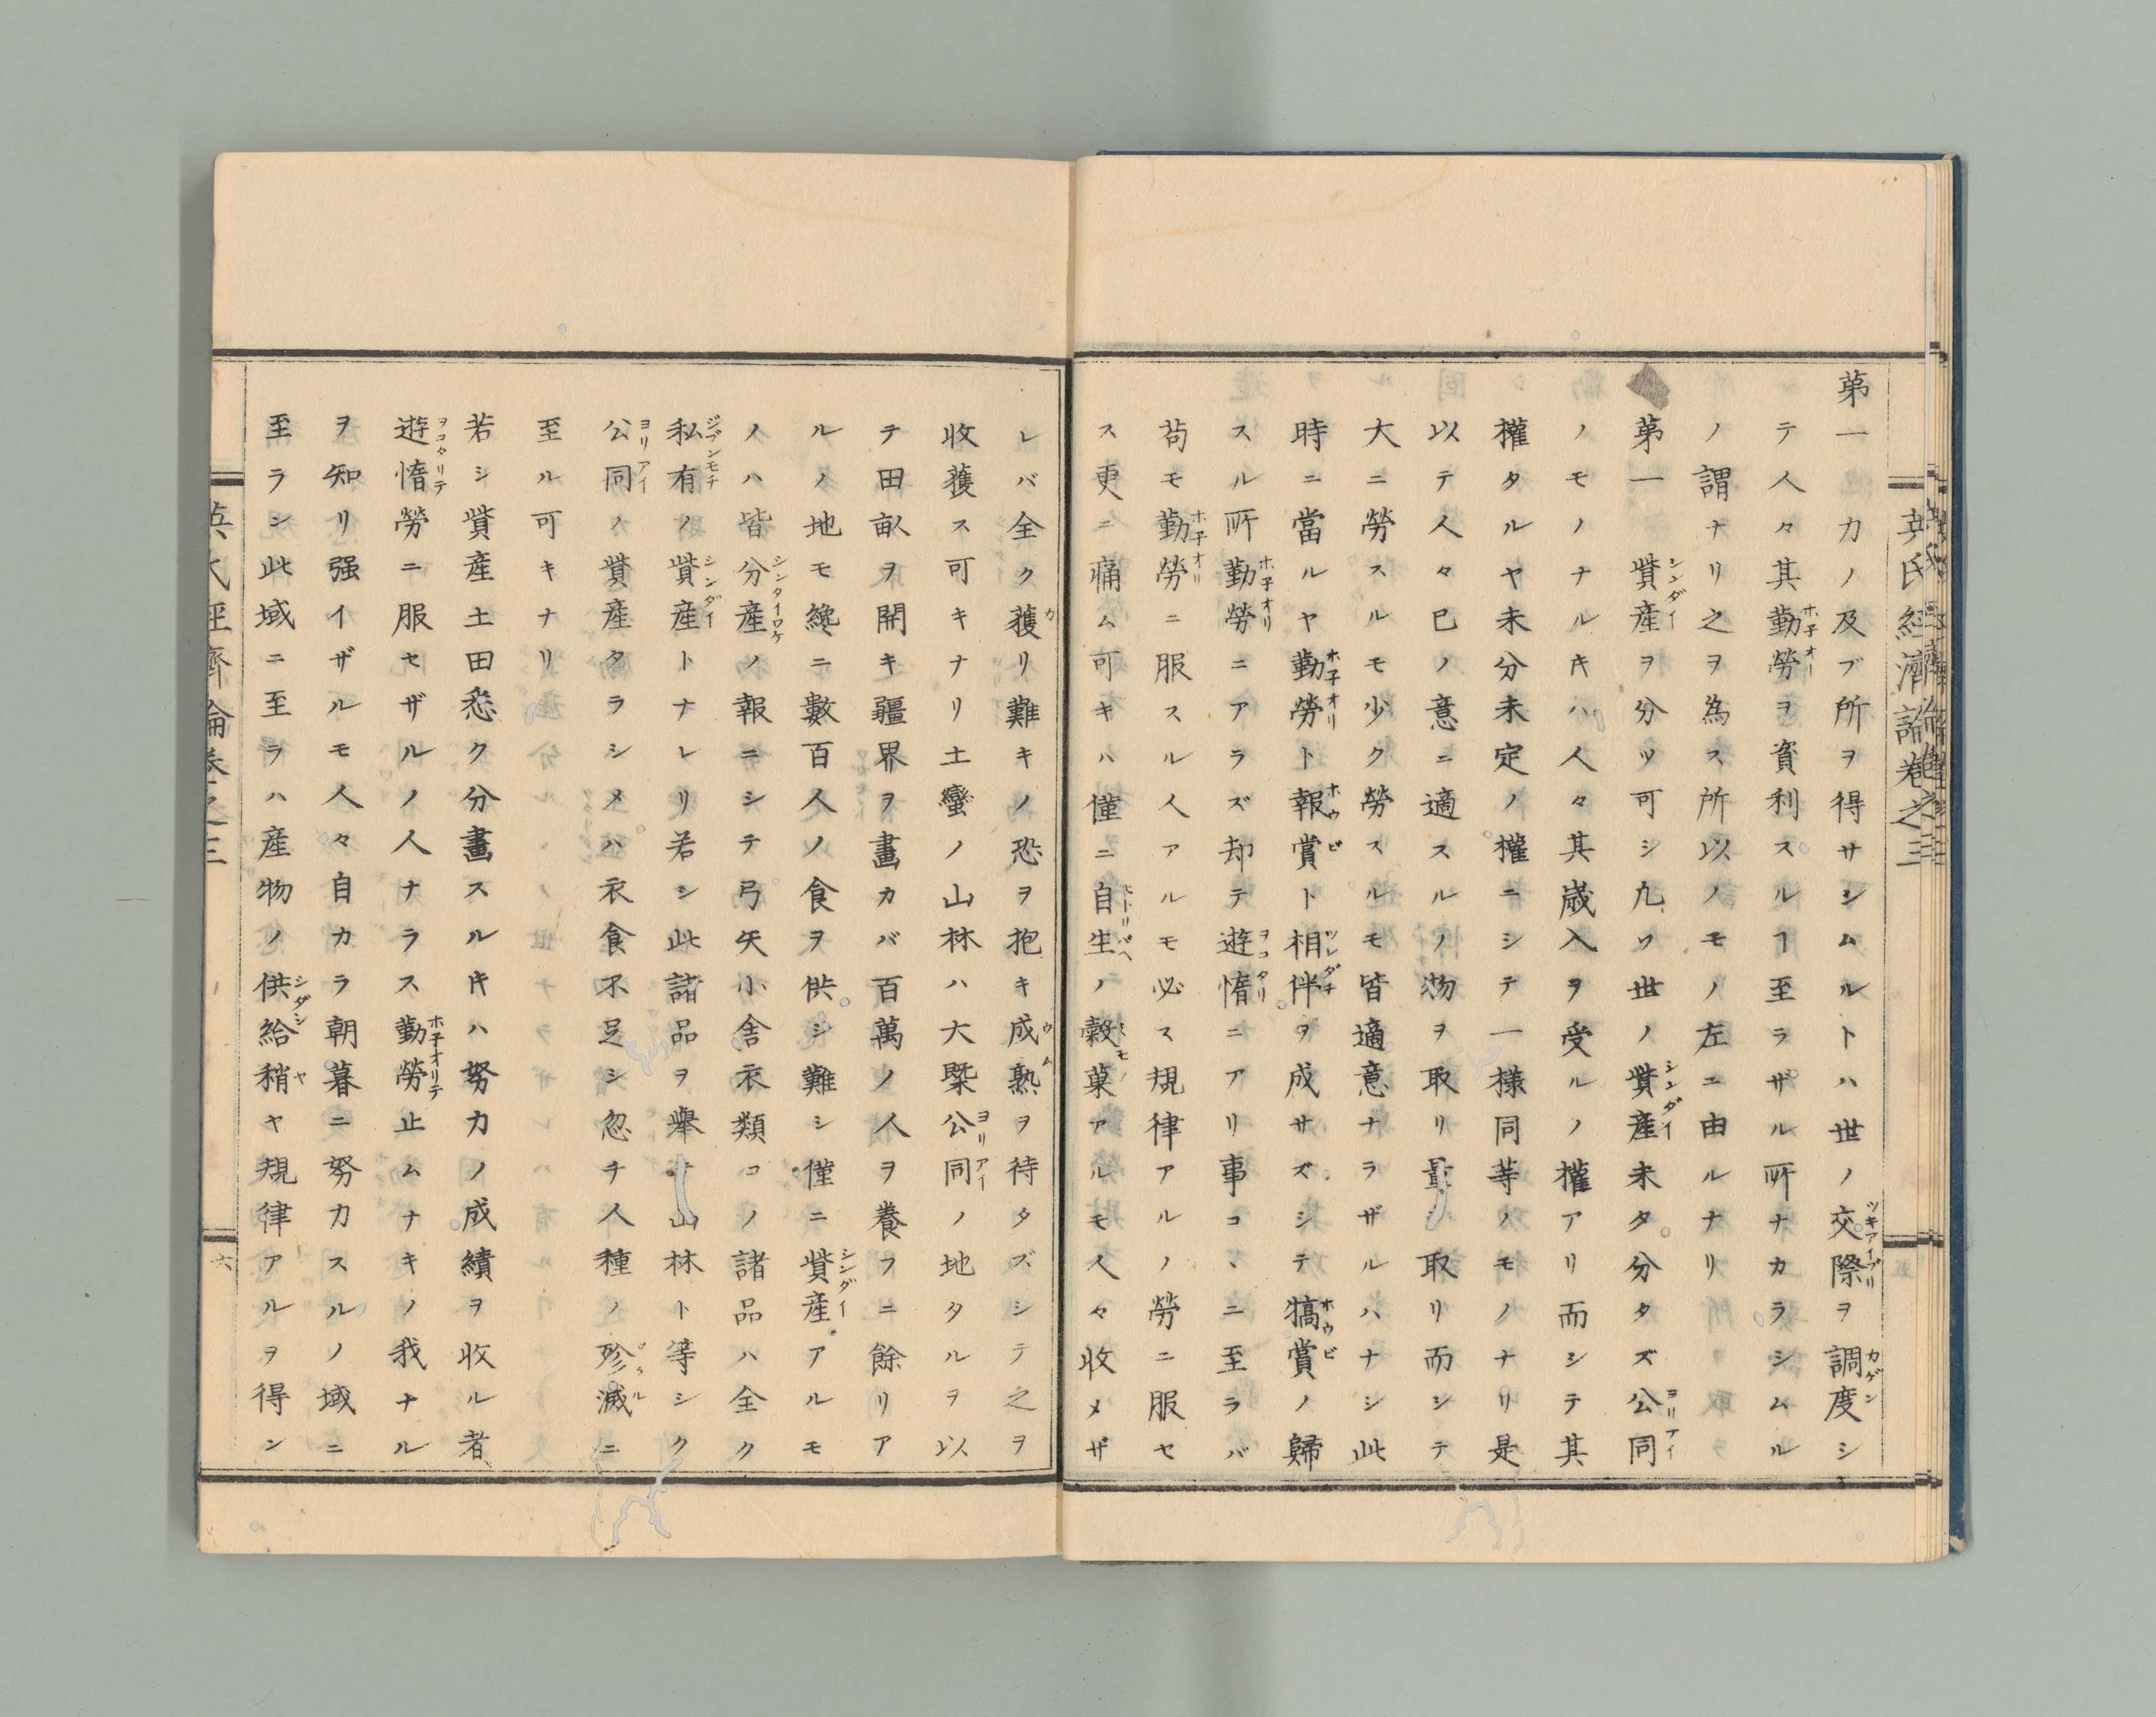 英氏經濟論卷之三
第一 力ノ及ブ所ヲ得サシムルトハ世ノ交際ヲ調度シ
テ人々其勤勞ヲ資利スルヿ至ラザル所ナカラシムル
ノ謂ナリ之ヲ為ス所以ノモノ左ニ由ルナリ
第一 貲産ヲ分ツ可シ凡ソ世ノ貲産未タ分タズ公同
ノモノナルキハ人々其歳入ヲ受ルノ權アリ而シテ其
權タルヤ未分未定ノ權ニシテ一様同等ノモノナリ是
以テ人々已ノ意ニ適スルノ物ヲ取リ量シ取リ而シテ
大ニ勞スルモ少ク勞スルモ皆適意ナラザルハナシ此
時ニ當ルヤ勤勞ト報賞ト相伴ヲ成サズシテ犒賞ノ歸
スル所勤勞ニアラズ却テ遊惰ニアリ事コヽニ至ラバ
苟モ勤勞ニ服スル人アルモ必ス規律アルノ勞ニ服セ
ス更ニ痛ム可キハ僅ニ自生ノ穀菓アルモ人々收メザ
レバ全ク獲リ難キノ恐ヲ抱キ成熟ヲ待タズシテ之ヲ
收獲ス可キナリ土蠻ノ山林ハ大槩公同ノ地タルヲ以
テ田畝ヲ開キ疆界ヲ畫カバ百萬ノ人ヲ養フニ餘リア
ルノ地モ纔ニ數百人ノ食ヲ供シ難シ僅ニ貲産アルモ
ノハ皆分産ノ報ニシテ弓矢小舎衣類コノ諸品ハ全ク
私有ノ貲産トナレリ若シ此諸品ヲ擧テ山林ト等シク
公同ノ貲産タラシメハ衣食不足シ忽チ人種ノ殄滅ニ
至ル可キナリ
若シ貲産土田悉ク分畫スルキハ努力ノ成績ヲ收ル者
遊惰勞ニ服セザルノ人ナラス勤勞止ムナキノ我ナル
ヲ知リ强イザルモ人々自カラ朝暮ニ努カスルノ域ニ
至ラシ此域ニ至ラハ産物ノ供給稍ヤ規律アルヲ得ン
英氏經濟論卷之三
六